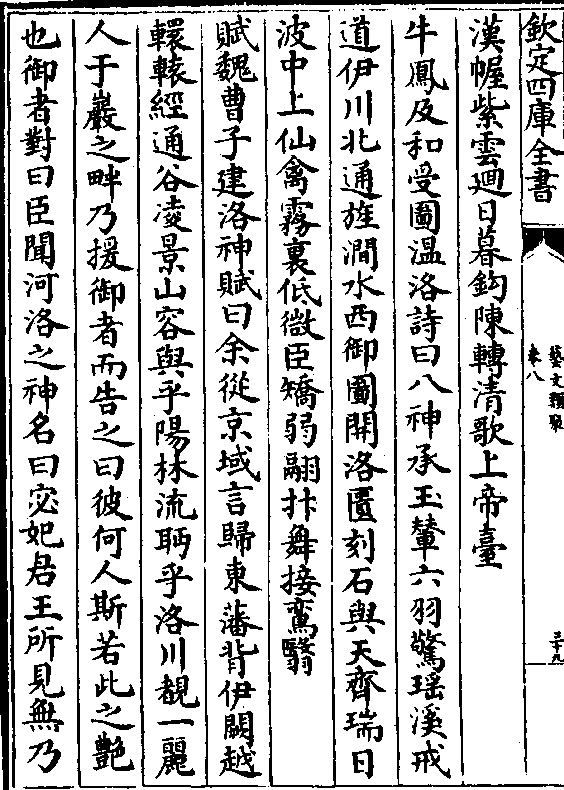 欽定四庫全書
藝文類聚
卷八
三十九
漢幄紫雲廻日暮鈎陳轉清歌上帝臺
牛鳳及和受圖温洛詩曰八神承玉輦六羽驚瑶溪戒
道伊川北通旌澗水西御圖開洛匱刻石與天齊瑞日
波中上仙禽霧裏低微臣矯弱翮抃舞接鸞翳
賦魏曹子建洛神賦曰余從京域言歸東藩背伊闕越
轘轅經通谷凌景山容與乎陽林流眄乎洛川覩一麗
人于巖之畔乃援御者而告之曰彼何人斯若此之艶
也御者對曰臣聞河洛之神名曰宓妃君王所見無乃